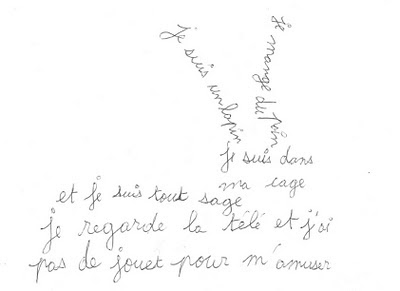 je suis un lapin
je mange du pain
je suis dans
ma cage
et je suis tout sage
je regarde la télé et j'ai
pas de jouet pour m'amuser